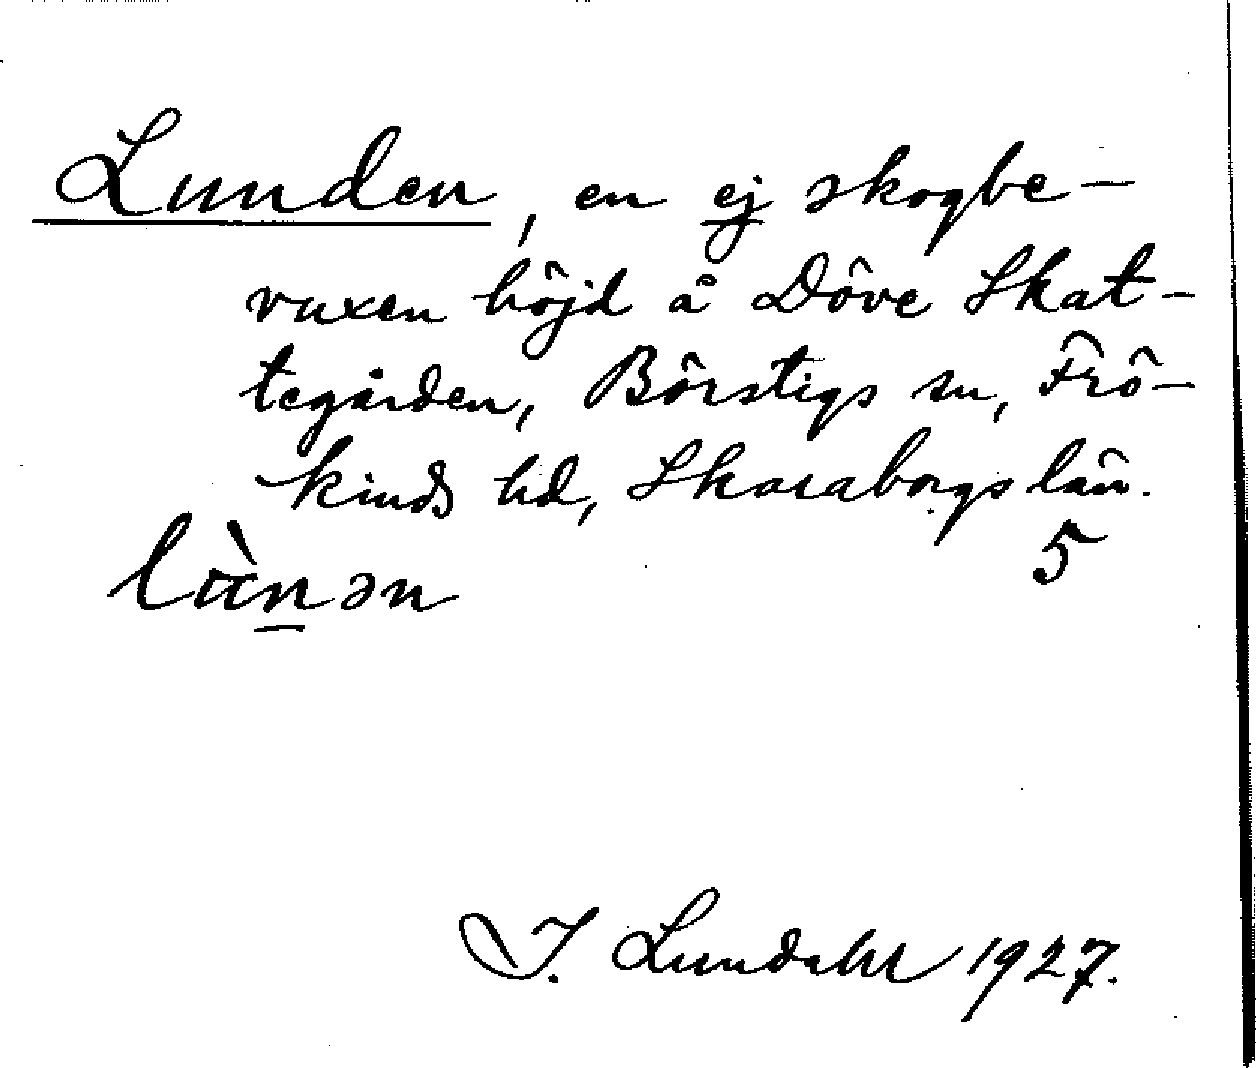 Lunden, en ej skogbe-
vuxen höjd å Döve Skat-
tegården, Börstigs sn, Frö-
kinds hd, Skaraborgs län.
5
lùnən
I. Lundahl 1927.